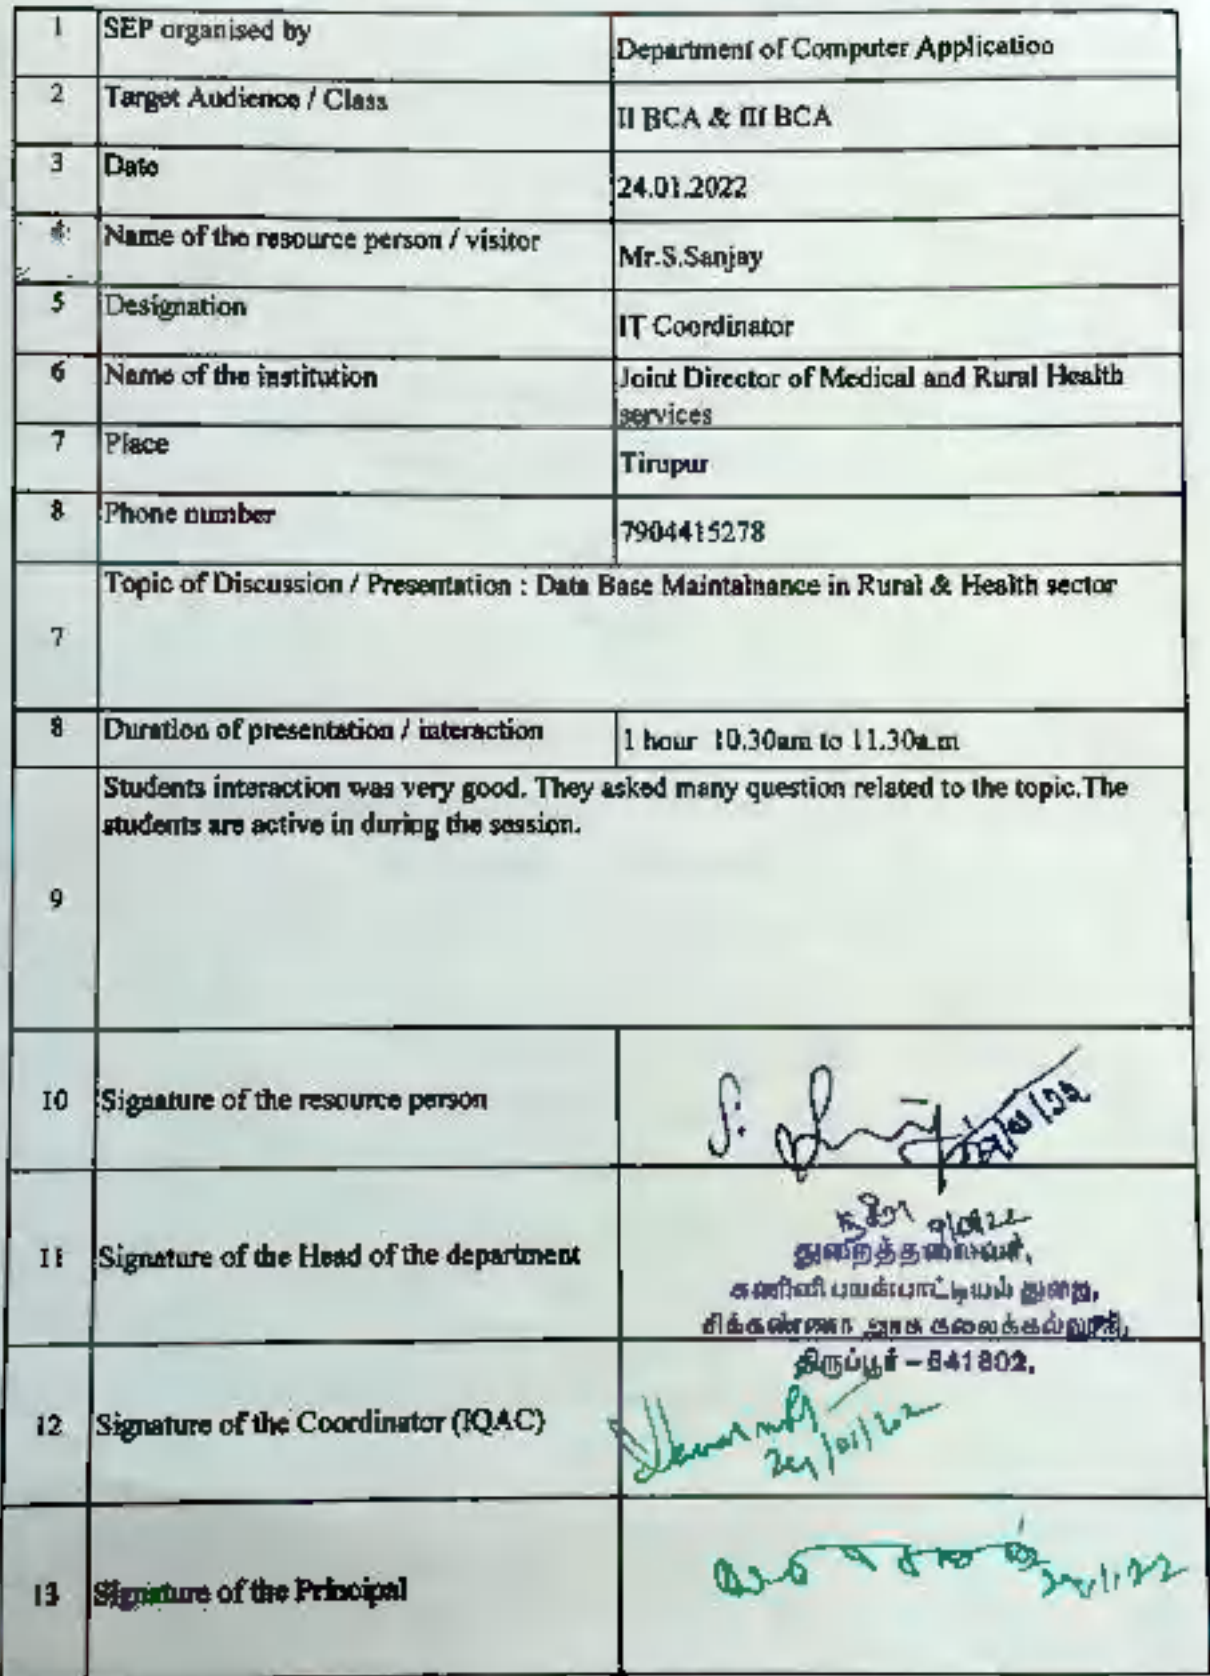 1 SEP organised by Department of Computer Application
2 Target Audience / Class II BCA & III BCA
3 Date 24.01.2022
4 Name of the resource person / visitor Mr.S.Sanjay
5 Designation IT Coordinator
6 Name of the institution Joint Director of Medical and Rural Health
services
7 Place Tirupur
8 Phone number 7904415278
Topic of Discussion / Presentation : Data Base Maintainance in Rural & Health sector
7
8 Duration of presentation / interaction 1 hour 10.30am to 11.30a.m
Students interaction was very good. They asked many question related to the topic.The
students are active in during the session.
9
10 Signature of the resource person S.
துறைத்தலைவர்,
11 Signature of the Head of the department
கணினி பயன்பாட்டியல் துறை,
சிக்கண்ணா அரசு கலைக்கல்லூரி,
திருப்பூர் – 641602.
12 Signature of the Coordinator (IQAC) 24/01/22
13 Signature of the Principal